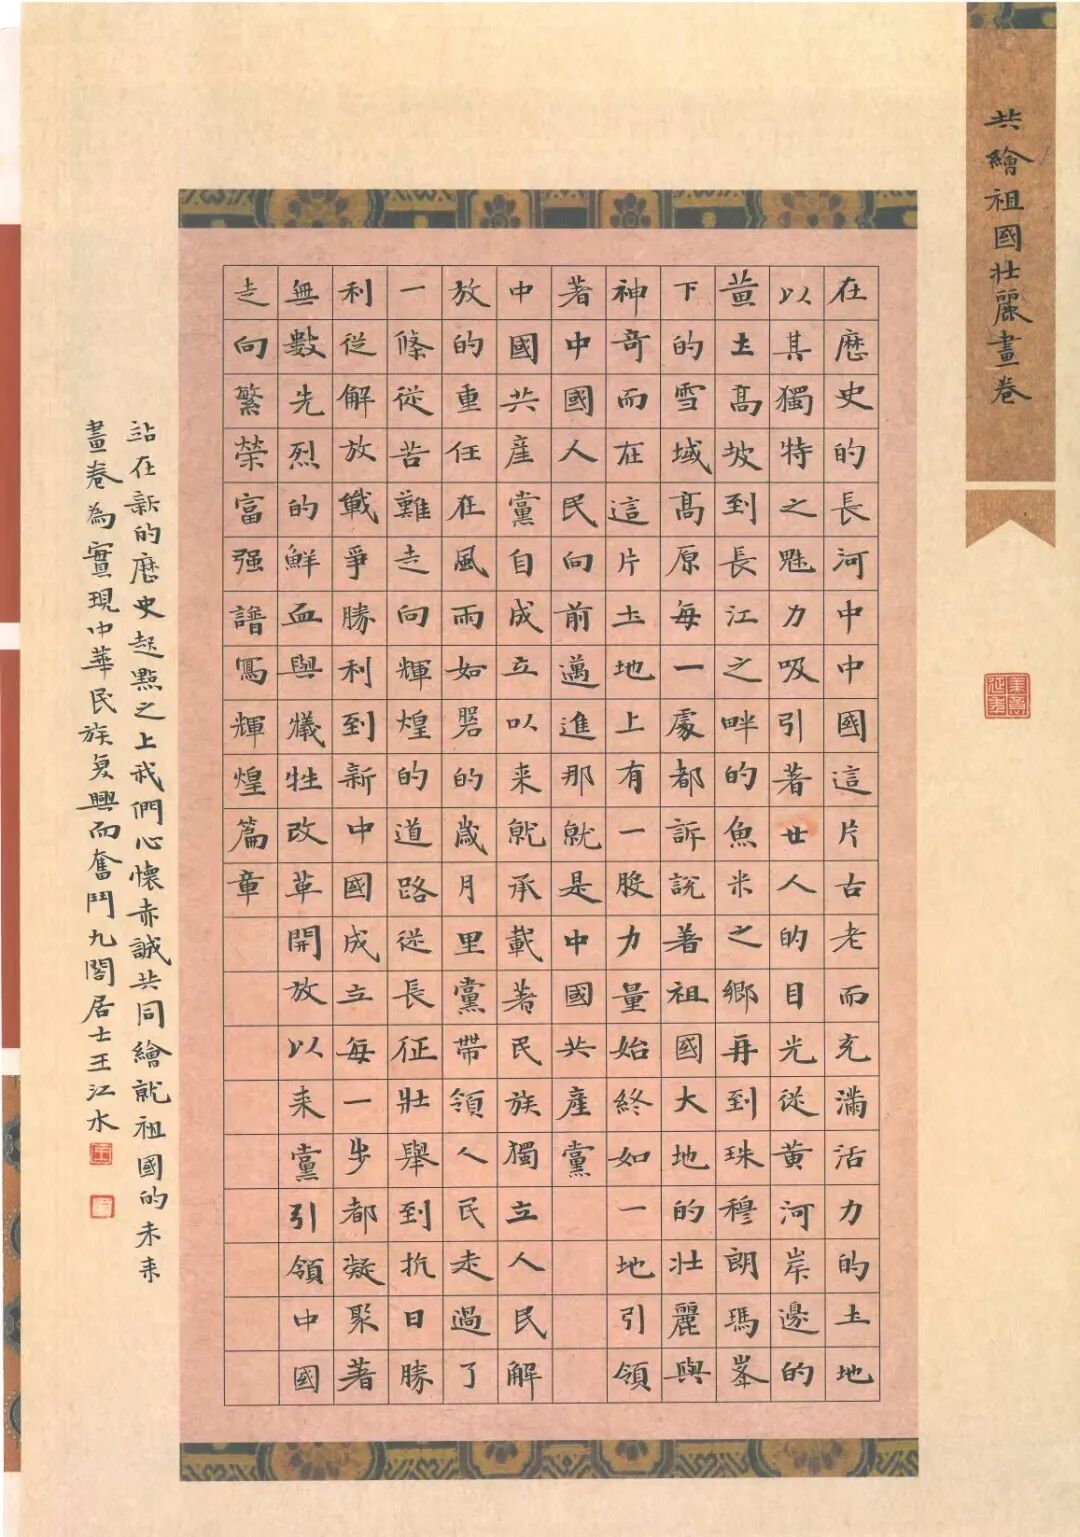 共繪祖國壯麗畫卷
在歷史的長河中中國這片古老而充滿活力的土地
以其獨特之魅力吸引著世人的目光從黃河岸邊的
黃土高坡到長江之畔的魚米之鄉再到珠穆朗瑪峯
下的雪域高原每一處都訴說著祖國大地的壯麗與
神奇而在這片土地上有一股力量始終如一地引領
著中國人民向前邁進那就是中國共產黨
中國共產黨自成立以来就承載著民族獨立人民解
放的重任在風雨如磐的歲月里黨帶領人民走過了
一條從苦難走向輝煌的道路從長征壯舉到抗日勝
利從解放戰爭勝利到新中國成立每一步都凝聚著
無數先烈的鮮血與犧牲改革開放以来黨引領中國
走向繁榮富强譜寫輝煌篇章
站在新的歷史起點之上我們心懷赤誠共同繪就祖國的未来
畫卷為實現中華民族复興而奮鬥九閣居士王江水